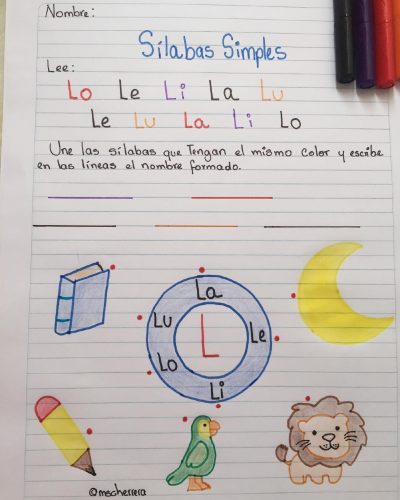 Nombre:
Sílabas Simples
Lee:
Lo Le Li La Lu
Le Lu La Li Lo
Une las sílabas que Tengan el mismo Color y escribe
en las líneas el nombre formado.
La
Lu
Le
L
Lo
Li
@mscherrera